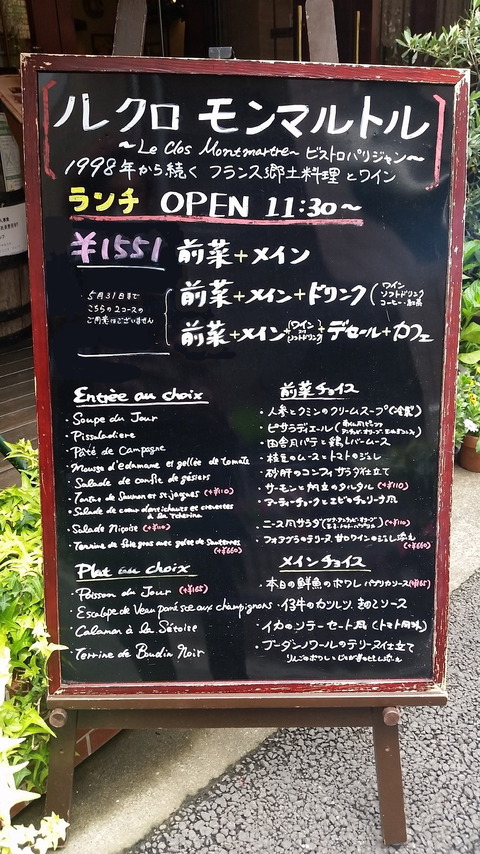 ルクロ モンマルトル
~Le Clos Montmartre~ ビストロパリジャン~
1998年から続く フランス郷土料理とワイン
ランチ OPEN 11:30~
¥1551 前菜+メイン
5月31日まで
こちらの2コースの
ご用意はございません
前菜+メイン+ドリンク(ワイン ソフトドリンク コーヒー・紅茶
前菜+メイン+(ワイン or ソフトドリンク)+デセール+カフェ
Entrée au choix
・Soupe du Jour
・Pissaladiere
・Pâté de Campagne
・Mousse d'edamame et gelée de tomate
・Salade de confit de gésiers
・Tartare de Saumon et st jaques (+¥110)
・Salade de cœur d'artichauts et crevettes
à la Tchorina
・Salade Niçoise (+¥110)
・Terrine de foie gras avec gelée de Sauternes
(+¥660)
Plat au choix
・Poisson du Jour (+¥165)
・Escalope de Veau pané sce aux champignons
・Calamar à la Sétoise
・Terrine de Boudin Noir
前菜チョイス
・人参とクミンのクリームスープ(冷製)
・ピサラディエール
・田舎風パテと鶏レバームース
・枝豆のムースとトマトのジュレ
・砂肝のコンフィサラダ仕立て
・サーモンと帆立のタルタル (+¥110)
・アーティーチョークとエビのチョリーナ風
・ニース風サラダ (+¥110)
・フォアグラのテリーヌ 甘口ワインのジュレ添え
(+¥660)
メインチョイス
・本日の鮮魚のポワレ パプリカソース(+¥165)
・仔牛のカツレツ きのこソース
・イカのソテー セート風(トマト風味)
・ブーダンノワールのテリーヌ仕立て
りんごのポワレ じゃがいものピュレ添え